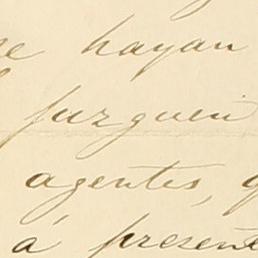 se hayan
juzguen
agentes,
á presente